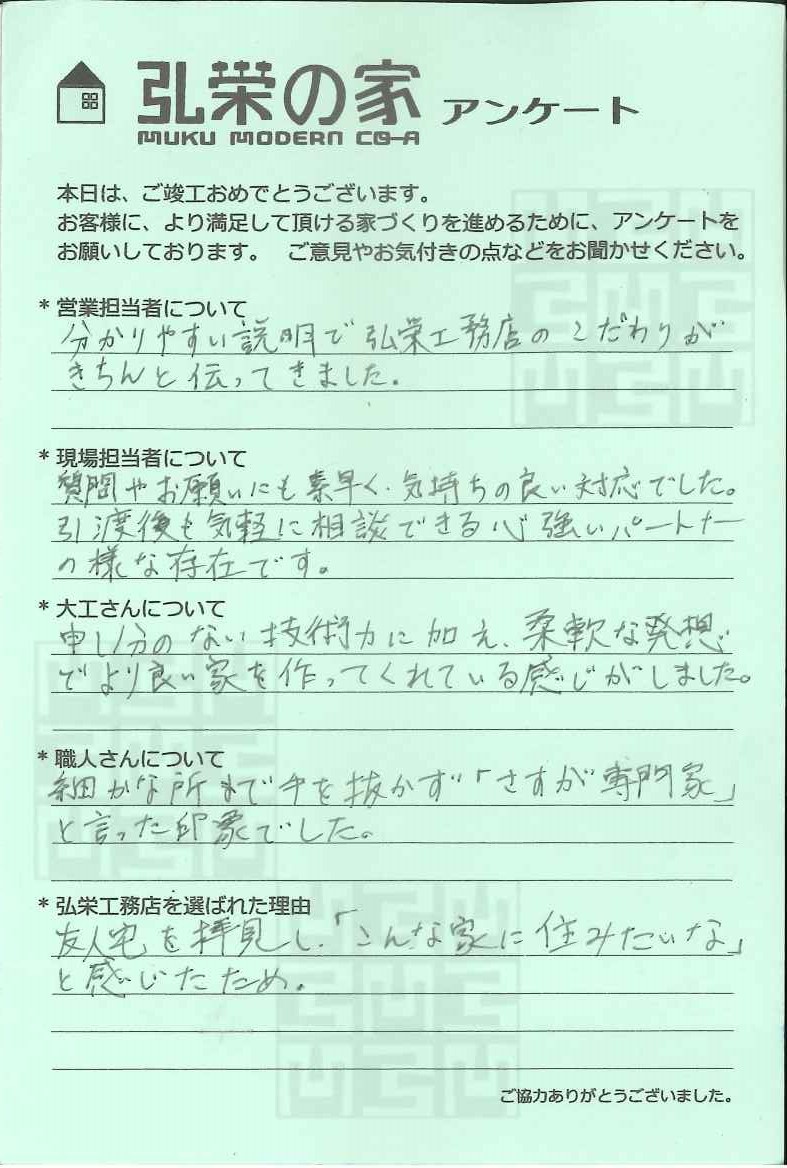 弘栄の家 アンケート
MUKU MODERN CO-A
本日は、ご竣工おめでとうございます。
お客様に、より満足して頂ける家づくりを進めるために、アンケートを
お願いしております。 ご意見やお気付きの点などをお聞かせください。
* 営業担当者について
分かりやすい説明で弘栄工務店のこだわりが
きちんと伝ってきました。
* 現場担当者について
質問やお願いにも素早く、気持ちの良い対応でした。
引渡後も気軽に相談できる心強いパートナー
の様な存在です。
* 大工さんについて
申し分のない技術力に加え、柔軟な発想
でより良い家を作ってくれている感じがしました。
* 職人さんについて
細かな所まで手を抜かず「さすが専門家」
と言った印象でした。
* 弘栄工務店を選ばれた理由
友人宅を拝見し、「こんな家に住みたいな」
と感じたため。
ご協力ありがとうございました。